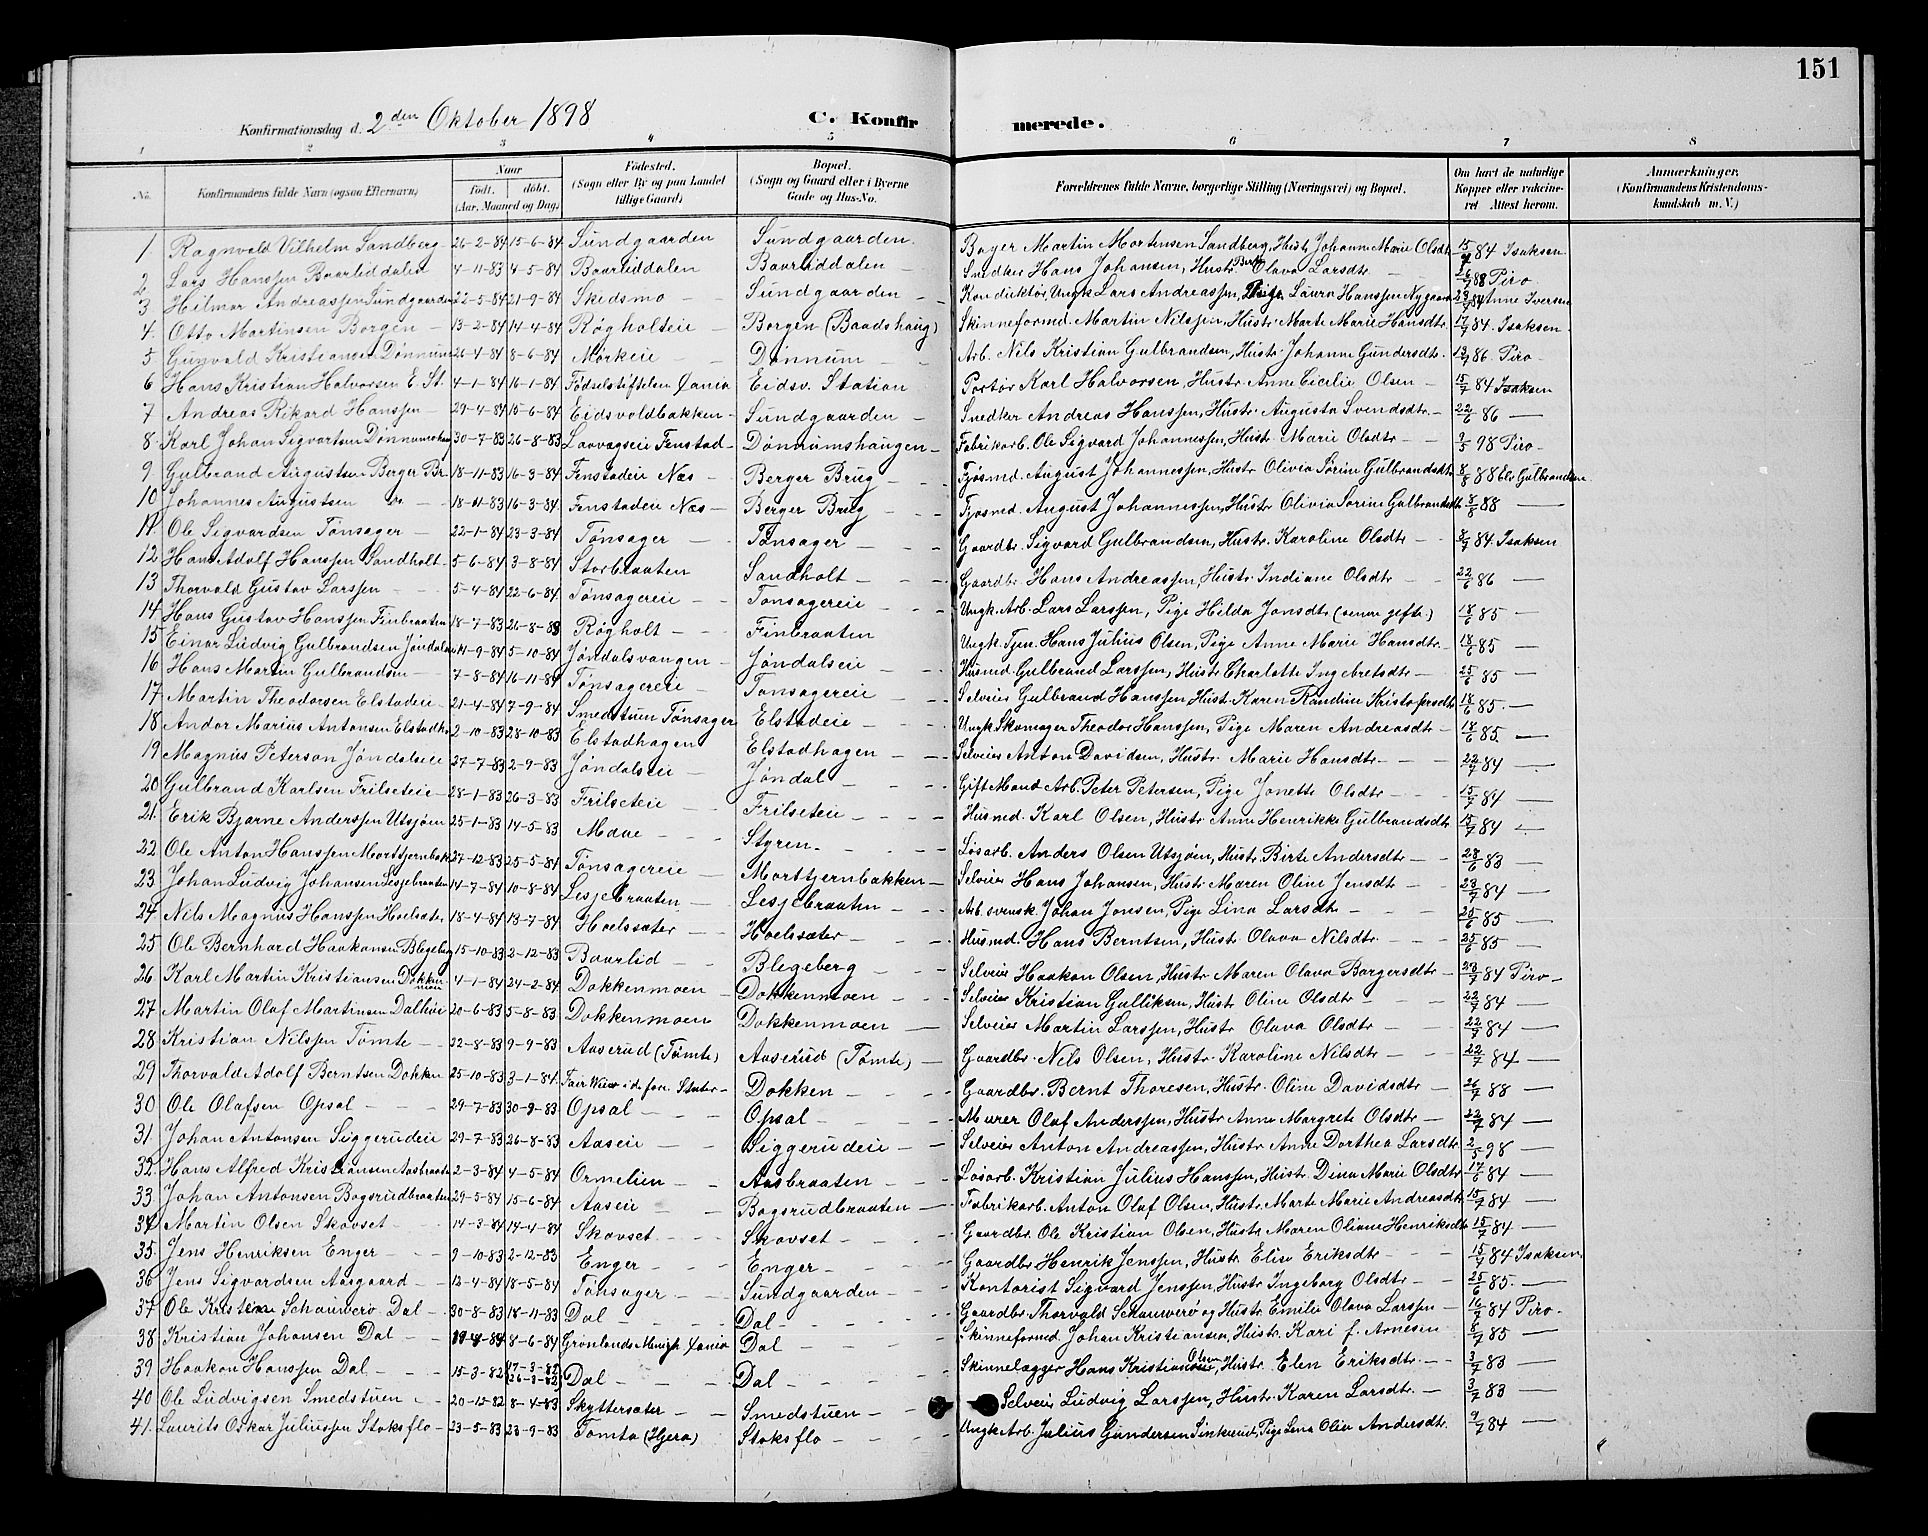 151
Konfirmationsdag d. 2den Oktober 1898 C. Konfirmerede.
1 2 3 4 5 6 7 8
No. Konfirmandens fulde Navn (ogsaa Efternavn) Naar født. døbt. (Aar, Maaned og Dag) Fødested. (Sogn eller By og paa Landet tillige Gaard) Bopæl. (Sogn og Gaard eller i Byerne Gade og Hus-No. Forældrenes fulde Navne, borgerlige Stilling (Næringsvei) og Bopæl. Om havt de naturlige Kopper eller vakcineret Attest herom. Anmærkninger. (Konfirmandens Kristendomskundskab m. V.)
1 Ragnvald Vilhelm Sandberg 26-2-84 15-6-84 Sundgaarden Sundgaarden Bager Martin Mortensen Sandberg, Hustr. Johanne Marie Olsdtr 84 Isaksen
2 Lars Hanssen Baarliddalen 4-11-83 4-5-84 Baarliddalen Baarliddalen Snedker Hans Johansen, Hustr. Berthe Olava Larsdtr. 88 Piro
3 Hilmar Andreassen Sundgaarden 22-5-84 21-9-84 Skidsmo Sundgaarden Konduktør, Ungk. Lars Andreassen, Pige Laura Hanssen Nygaard 84 Anne Iversen
4. Otto Martinsen Borgen 13-2-84 14-4-84 Røgholteie Borgen (Baadshaug) Skinneformd. Martin Nilssen, Hustr. Marte Marie Hansdtr. 17/7 84. Isaksen
5 Gunvald Kristiansen Dønnum 26-4-84 8-6-84 Mørkeie Dønnum Arb. Nils Kristian Gulbrandsen, Hustr. Johanne Gundersdtr. 86. Piro
6 Hans Kristian Halvorsen E. St. 4-1-84 16-1-84 Fødselstiftelsen Xania Eidsv. Station Portør Karl Halvorsen, Hustr. Anne Cicilie Olsen 15/7 84 Isaksen
7 Andreas Rikard Hanssen 29-4-84 15-6-84 Eidsvoldbakken Sundgaarden Snedker Andreas Hanssen, Hustr. Augusta Svendsdtr. 22/6 86 —
8 Karl Johan Sigvartsen Dønnumshau 30-7-83 26-8-83 Laavageie Fenstad Dønnumshaugen Fabrikarb. Ole Sigvard Johannessen, Hustr. Marie Olsdtr 2/5 98 Piro
9 Gulbrand Augustsen Berger Br. 18-11-83 16-3-84 Fenstadeie Næs Berger Brug Fjøsmd. August Johannessen, Hustr. Olivia Sørine Gulbrandsdtr 8/6 88 Els Gulbrandsen
10 Johannes Augustsen do 18-11-83 16-3-84 Fenstadeie Næs Berger Brug Fjøsmd. August Johannessen, Hustr. Olivia Sorine Gulbrandsdtr 8/6 88 —
11. Ole Sigvardsen Tønsager 22-1-84 23-3-84 Tønsager Tønsager Gaardbr. Sigvard Gulbrandsen, Hustr. Karoline Olsdtr 84. Isaksen
12 Hans Adolf Hanssen Sandholt 5-6-84 3-8-84 Storbraaten Sandholt Gaardbr. Hans Andreassen, Hustr. Indiane Olsdtr 22/6 86 —
13 Thorvald Gustav Larssen 5-4-84 22-6-84 Tønsagereie Tonsagereie Ungk. Arb. Lars Larssen, Pige Hilda Jonsdtr (senere gifte.) 18/6 85 —
14. Hans Gustav Hanssen Finbraaten 18-7-83 26-8-83 Røgholt Finbraaten Ungk. Tjen. Hans Julius Olsen, Pige Anne Marie Hansdtr. 18/6 85 —
15 Einar Ludvig Gulbrandsen Jøndalen 14-9-84 5-10-84 Jøndalsvangen Jøndalseie Husmd. Gulbrand Larssen, Hustr. Charlotte Ingebretsdtr 25/6 85 —
16 Hans Martin Gulbrandsen 7-8-84 16-11-84 Tønsagereie Tonsagereie Selveier Gulbrand Hanssen Hustr. Karen Randine Kristofersdtr 18/6 85. —
17 Martin Theodorsen Elstadeie 21-4-84 7-9-84 Smedstuen Tønsager Elstadeie Ungk. Skomager Theodor Hanssen, Pige Maren Andreasdtr 18/6 85. —
18 Andor Marius Antonsen Elstadh. 2-10-83 28-10-83 Elstadhagen Elstadhagen Selveier Anton Davidsen, Hustr. Marie Hansdtr 22/7 84 —
19 Magnus Peterson Jøndalseie 27-7-83 2-9-83 Jøndalseie Jøndal Gift Mand Arb. Peter Petersen, Pige Jonette Olsdtr 15/7 84 —
20 Gulbrand Karlsen Frilseteie 28-1-83 26-3-83 Frilseteie Frilseteie Husmd. Karl Olsen, Hustr. Anne Henrikke Gulbrandsdtr 15/7 84 —
21. Erik Bjarne Anderssen Utsjøen 25-1-83 14-5-83 Mdae Styren Løsarb. Anders Olsen Utsjøen, Hustr. Birte Andersdtr 28/6 83 —
22 Ole Anton Hanssen Morttjernbak 27-12-83 25-5-84 Tønsagereie Morttjernbakken Selveier Hans Johansen, Hustr. Maren Oline Jensdtr 23/7 84 —
23 Johan Ludvig Johansen Lesjebraaten 14-7-84 10-8-84 Lesjebraaten Lesjebraaten Arb. svensk. Johan Jonsen, Pige Lina Larsdtr 25/6 85 —
24 Nils Magnus Hanssen Hoelsæter 18-4-84 13-7-84 Hoelssæter Hoelssæter Husmd. Hans Berntsen, Hustr. Olava Nilsdtr. 25/6 85 —
25 Ole Bernhard Haakonsen Blegeberg 15-10-83 2-12-83 Baarlid Blegeberg Selveier Haakon Olsen, Hustr Maren Olava Borgersdtr 23/7 84 Piro
26 Karl Martin Kristiansen Dokkenmoen 4-1-84 24-2-84 Dokkenmoen Dokkenmoen Selveier Kristian Gulliksen, Hustr. Oline Olsdtr 22/7 84 —
27 Martin Olaf Martinsen Dalheie 20-6-83 5-8-83 Dokkenmoen Dokkenmoen Selveier Martin Larssen, Hustr. Olava Olsdtr 22/7 84 —
28 Kristian Nilssen Tømte 22-8-83 9-9-83 Aaserud (Tømte) Aaserud (Tømte) Gaardbr. Nils Olsen, Hustr. Karoline Nilsdtr 22/7 84 —
29 Thorvald Adolf Berntsen Dokken 25-10-83 3-1-84. Fair View i de for. Stater Dokken Gaardbr. Bernt Thoresen, Hustr. Oline Davidsdtr 26/7 88 —
30 Ole Olafsen Opsal 29-7-83 30-9-83 Opsal Opsal Murer Olaf Anderssen, Hustr. Anne Margrete Olsdtr 22/7 84 —
31. Johan Antonsen Siggerudeie 29-7-83 26-8-83 Aaseie Siggerudeie Selveier Anton Andreassen, Hustr. Anne Dorthea Larsdtr. 2/5 98 —
32. Hans Alfred Kristiansen Aasbraaten 2-3-84 4-5-84 Ormelien Aasbraaten Løsarb. Kristian Julius Hanssen, Hustr. Dina Marie Olsdtr 17/6 84 —
33 Johan Antonsen Bogsrudbraaten 29-5-84 15-6-84 Aaseie Bogsrudbraaten Fabrikarb. Anton Olaf Olsen, Hustr. Marte Marie Andreasdtr 15/7 84 —
34 Martin Olsen Skovset 14-3-84 14-4-84 Skovset Skovset Gaardbr. Ole Kristian Olsen, Hustr. Maren Oliane Henriksdtr 15/7 84 —
35. Jens Henriksen Enger 9-10-83 2-12-83 Enger Enger Gaardbr Henrik Jenssen, Hustr. Elise Eriksdtr 15/7 84 Isaksen
36 Jens Sigvardsen Aasgaard 12-4-84 18-5-84 Tønsager Sundgaarden Kontorist Sigvard Jenssen, Hustr Ingeborg Olsdtr 25/6 85. —
37 Ole Kristian Schauwerø Dal 30-8-83 18-11-83 Dal Dal Gaardbr Thorvald Schauwerø og Hustr. Emilie Olava Larssen 16/7 84 Piro
38 Kristian Johansen Dal 8-6-84 Grønlands Menigh. Xania Dal Skinneformd. Johan Kristiansen, Hustr. Kari f. Arnesen 8/7 85 —
39 Haakon Hanssen Dal 15-3-82 17-3-82 26-3-82 Dal Dal Skinnelægger Hans Kristian Olsen, Hustr. Elen Eriksdtr. 3/7 83 —
40 Ole Ludvigsen Smedstuen 20-12-82 8-4-83 Skyttersæter Smedstuen Selveier Ludvig Larssen, Hustr. Karen Larsdtr. 3/7 83 —
41. Laurits Oskar Juliussen Stoksflo 23-5-83 23-9-83 Tømta (Hjera) Stoksflo Ungk. Arb. Julius Gundersen Sinkerud, Pige Lena Olia Andersdtr. 9/7 84 —